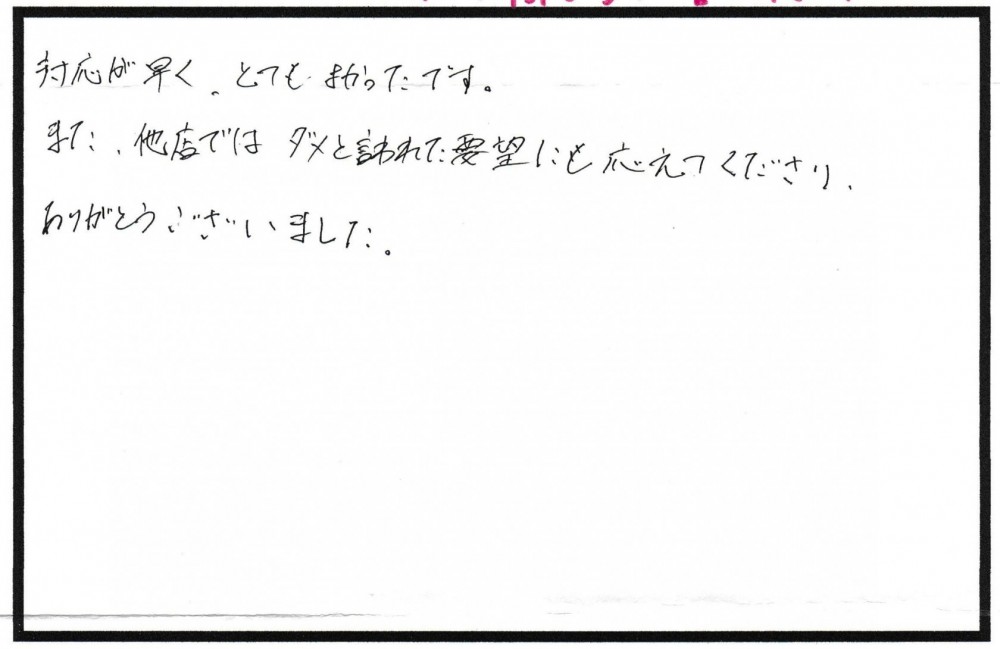 対応が早く、とてもよかったです。
また、他店ではダメと言われた要望にも応えてくださり、
ありがとうございました。